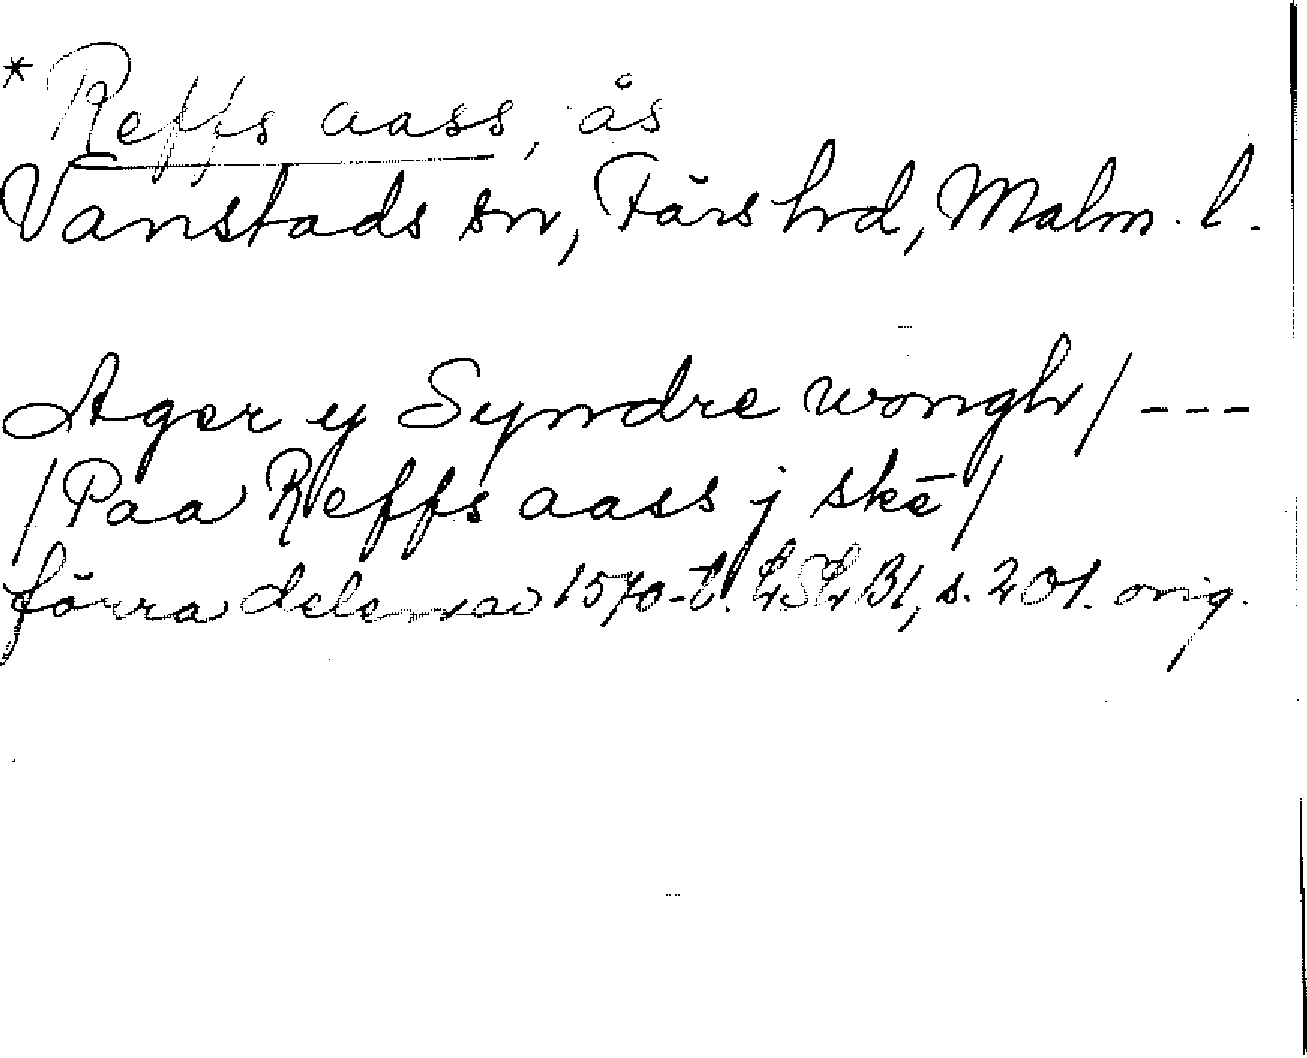 * Reffs aass, ås
Vanstads sn, Färs hd, Malm. l.
Ager y Syndre wongh / ---
/ Paa Reffs aass j skē /
förra delen av 1570-t. LSLB1, s. 201. orig.